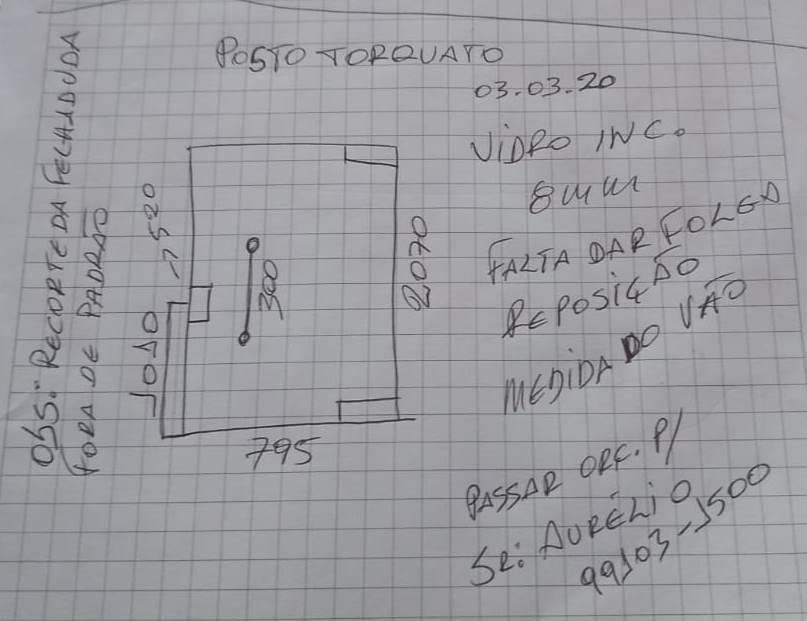 POSTO TORQUATO
03.03.20
VIDRO INC.
8mm
FALTA DAR FOLGA
REPOSIÇÃO
MEDIDA DO VÃO
PASSAR ORÇ. P/
SR: AURÉLIO
99103-1500
OBS: RECORTE DA FECHADUDA
FORA DE PADRÃO
1010 -> 520
300
2070
795